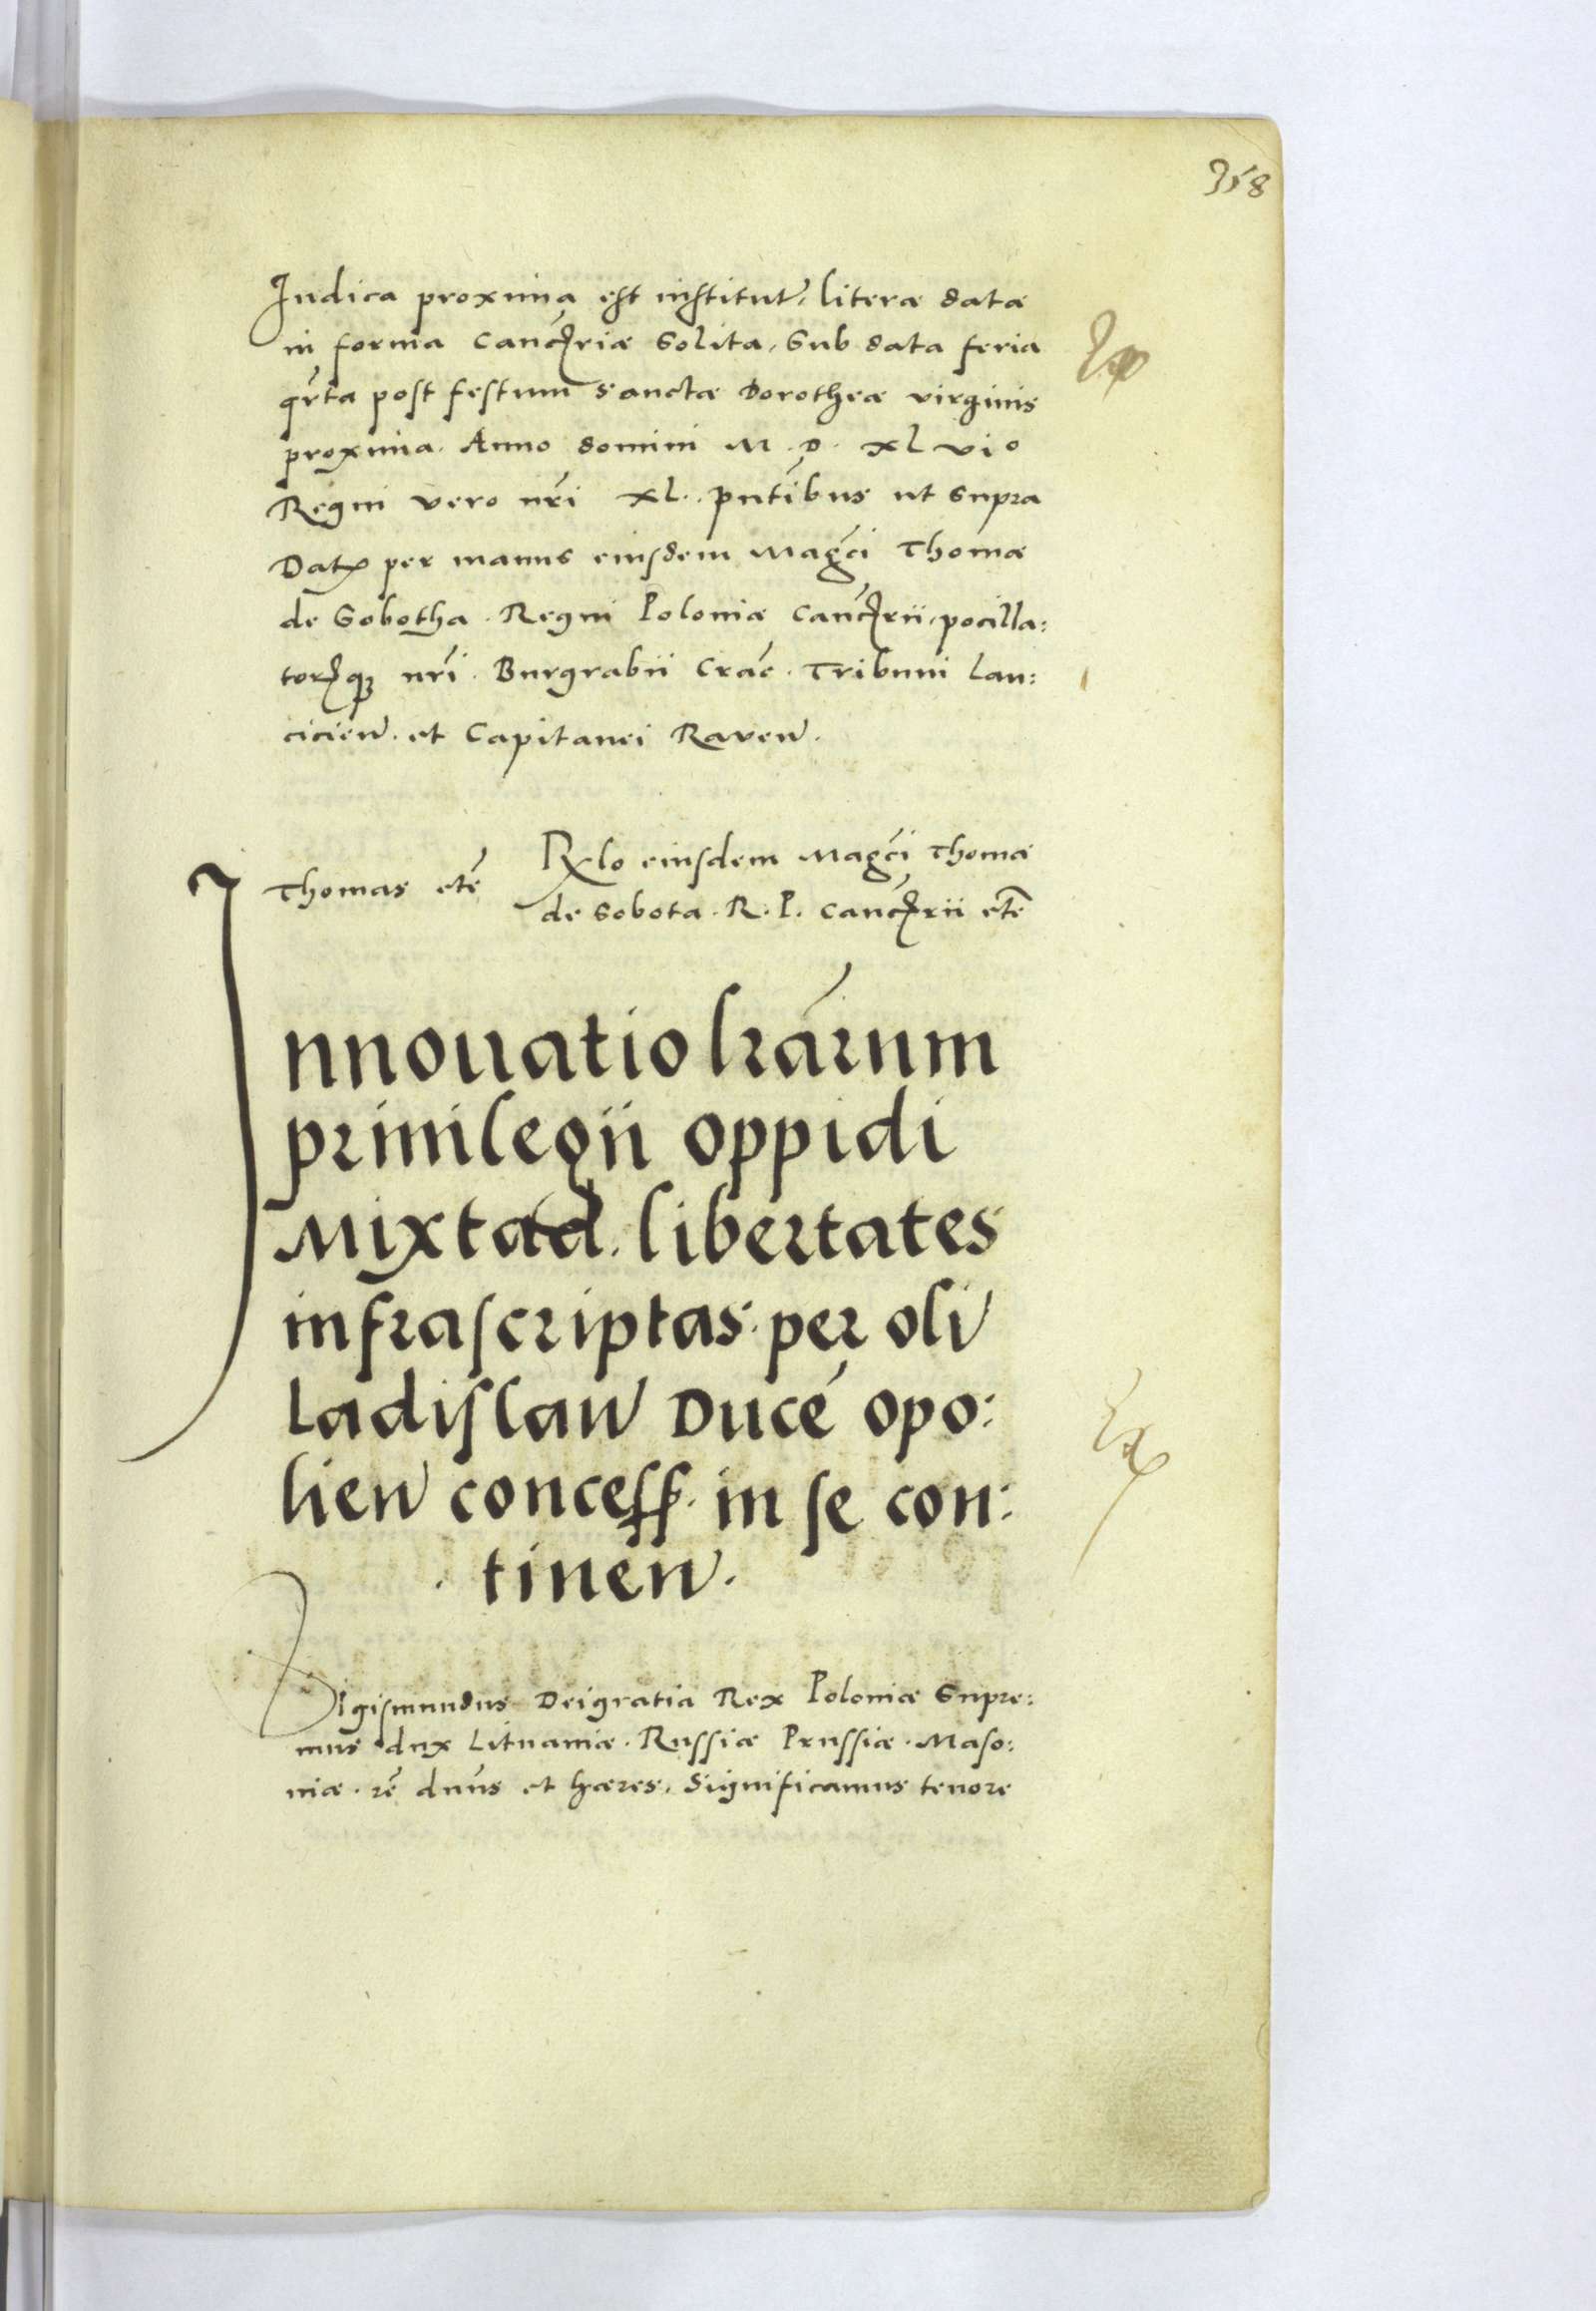 358
Iudica proxima est institut, literæ datæ
in forma Cancriæ solita, sub data feria
qrta post festum sanctæ Dorotheæ virginis
proxima. Anno domini M. D. XL vio
Regni vero nri XL. pntibus ut supra
Dat per manus eiusdem Magci Thomæ
de Sobotha. Regni Poloniæ Cancrii, pocilla:
torisq nri. Burgrabii Crac. Tribuni Lan:
cicien. et Capitanei Raven.
Thomas etc
Rlo eiusdem Magci Thomæ
de Sobota. R. P. Cancrii etc
Innouatio lrarum
priuilegii oppidi
Mixtad. libertates
infrascriptas. per oli
Ladislau Duce Opo:
lien concess. in se con:
. tinen.
Sigismundus Dei gratia Rex Poloniæ Supre:
mus dux Lituaniæ. Russiæ Prussiæ. Maso:
uiæ. rc dnus et hæres, Significamus tenore